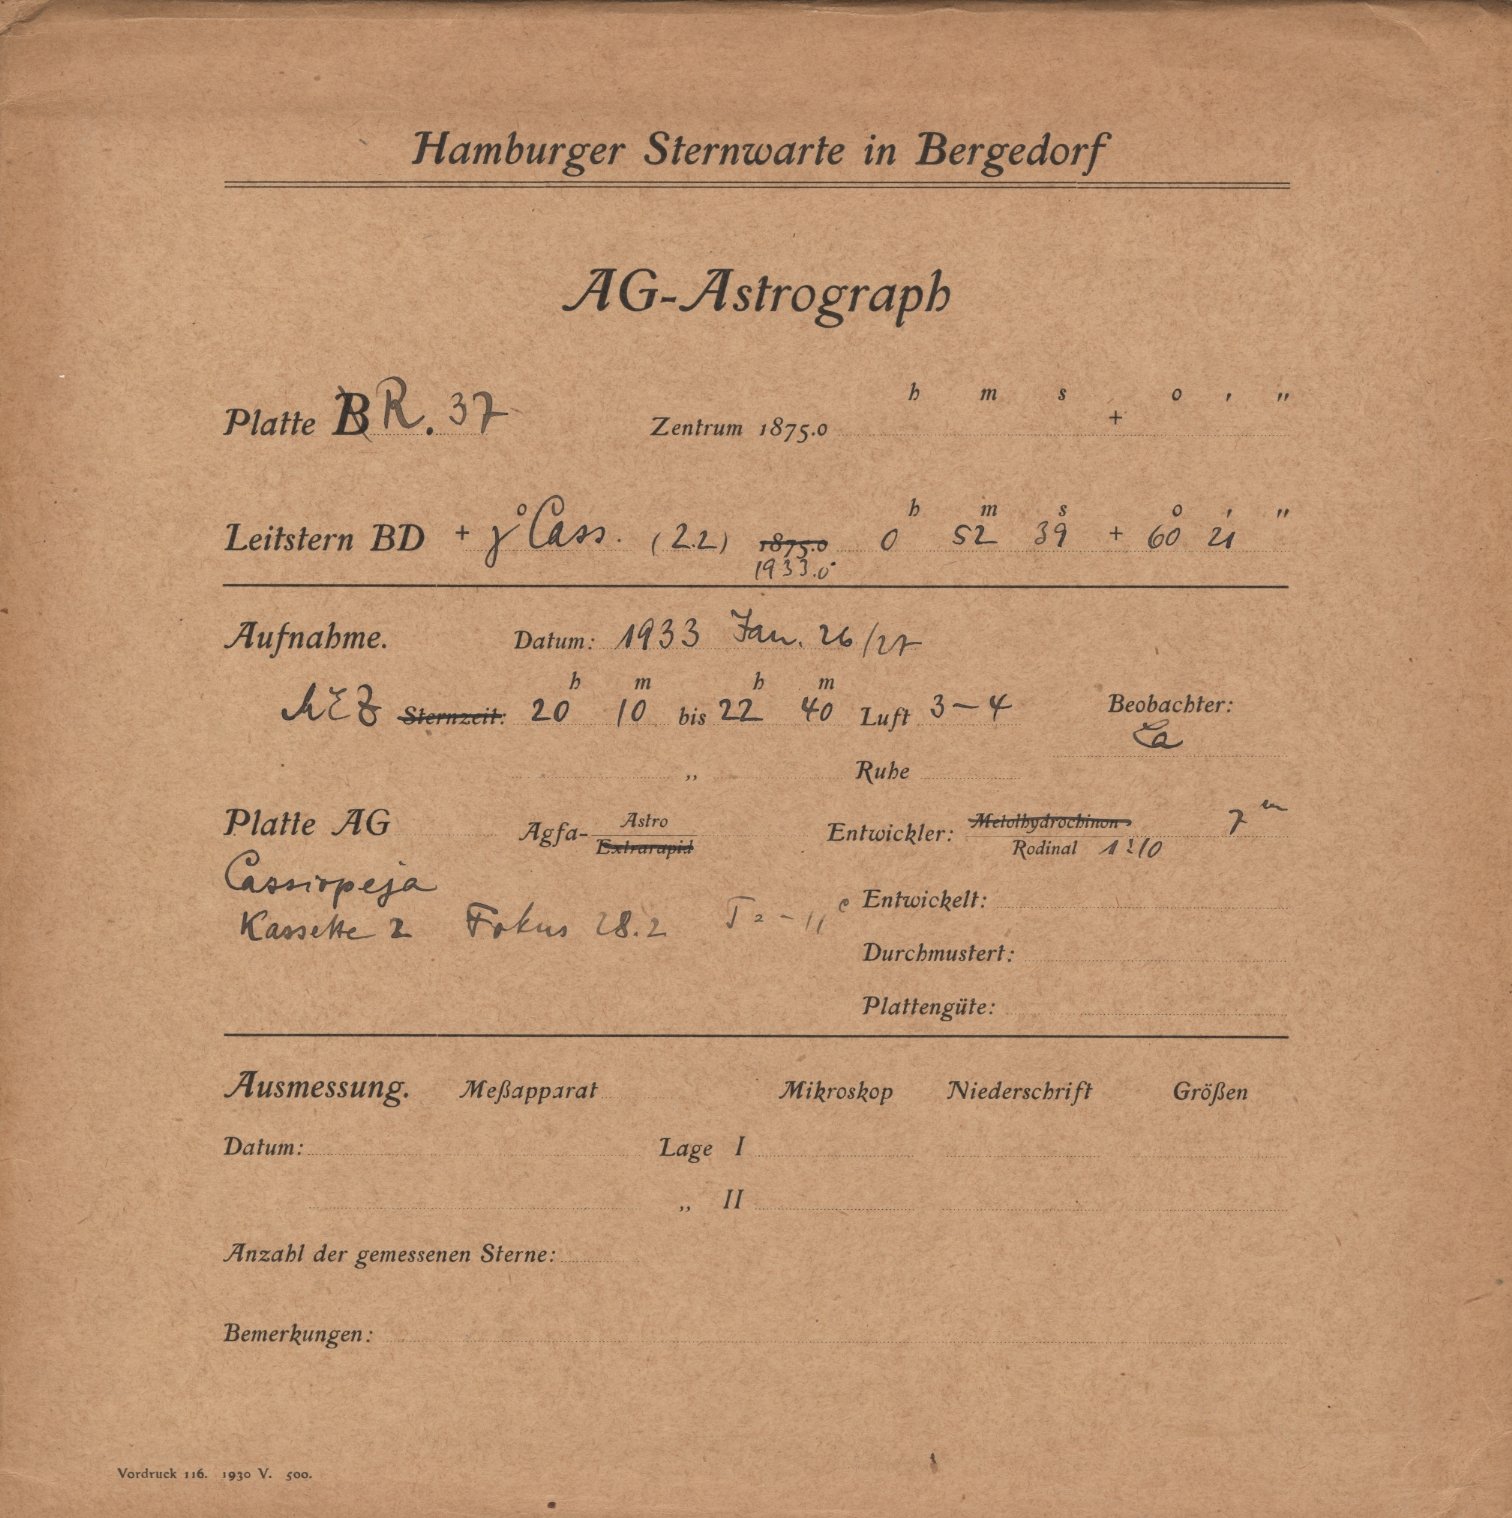 Hamburger Sternwarte in Bergedorf
AG-Astrograph
h m s o , ,,
Platte B R. 37 Zentrum 1875.0 +
h m s o , ,,
Leitstern BD + γ Cass. (2.2) 1875.0 0 52 39 + 60 21
1933.0
Aufnahme. Datum: 1933 Jan. 26/27
h m h m
MEZ Sternzeit: 20 10 bis 22 40 Luft 3-4 Beobachter:
La
,, Ruhe
Platte AG Agfa- Astro Extrarapid Entwickler: Metolhydrochinon Rodinal 1:10 7 m
Cassiopeja
Kassette 2 Fokus 28.2 T = -11
Entwickelt:
Durchmustert:
Plattengüte:
Ausmessung. Meßapparat Mikroskop Niederschrift Größen
Datum: Lage I
,, II
Anzahl der gemessenen Sterne:
Bemerkungen:
Vordruck 116. 1930 V. 500.